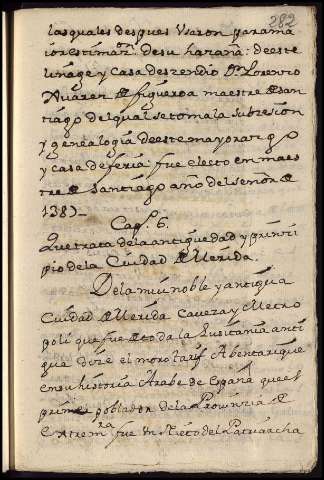 282
las quales despues Usaron para ma
ior estimaon. de su hazaña: de este
linage y casa deszendio Dn. Lorenzo
Suarez de figueroa maestre de san
tiago del qual se toma la subzesion
y genealogia de este mayorazgo
y casa de feria: fue electo en maes
tre de Santiago año del señor de
1385
Cap. 6.
Que trata de la antiguedad y prinzi
pio de la Ciudad de Merida.
De la mui noble y antigua
Ciudad de Merida Caveza y Metro
poli que fue de toda la Lusitania anti
gua dize el moro tarif Abentarique
en su historia Arabe de España que el
primer poblador de la Provinzia de
Extremra. fue un Nieto del Patriarcha